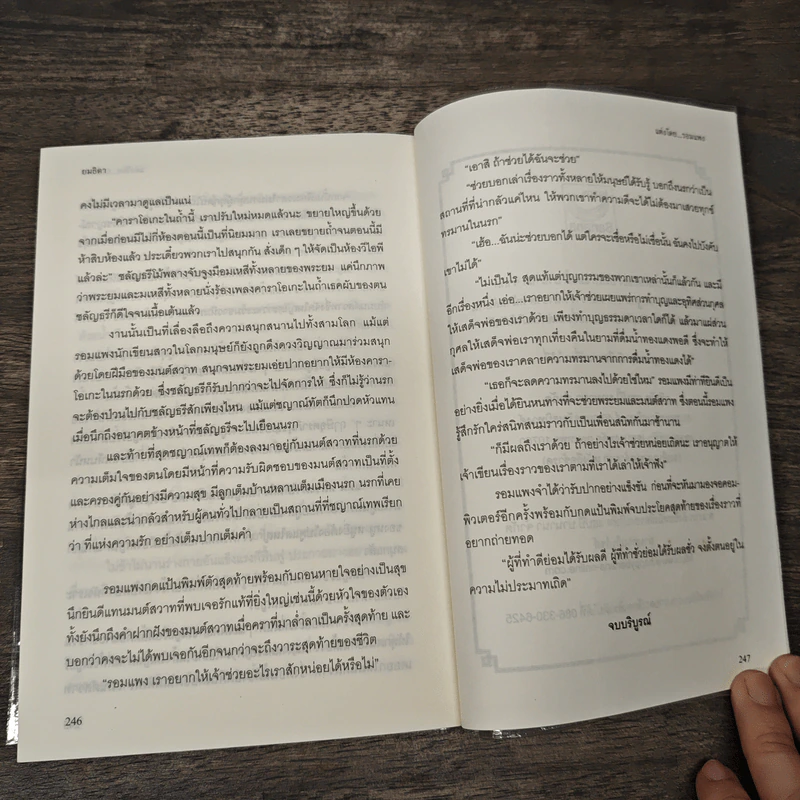 ยมธิดา
คงไม่มีเวลามาดูแลเป็นแน่
"คาราโอเกะในถ้ำนี้ เราปรับใหม่หมดแล้วนะ ขยายใหญ่ขึ้นด้วย
จากเมื่อก่อนมีไม่กี่ห้องตอนนี้เป็นที่นิยมมาก เราเลยขยายถ้ำจนตอนนี้มี
ห้าสิบห้องแล้ว ประเดี๋ยวพวกเราไปสนุกกัน สั่งเด็ก ๆ ให้จัดเป็นห้องวีไอพี
แล้วล่ะ" ชลัญธรีไม้พลางจับจูงมือมเหสีทั้งหลายของพระยม แค่นึกภาพ
ว่าพระยมและมเหสีทั้งหลายนั่งร้องเพลงคาราโอเกะในถ้ำเธคผับของตน
ชลัญธรีก็ดีใจจนเนื้อเต้นแล้ว
งานนั้นเป็นที่เลื่องลือถึงความสนุกสนานไปทั้งสามโลก แม้แต่
รอมแพงนักเขียนสาวในโลกมนุษย์ก็ยังถูกดึงดวงวิญญาณมาร่วมสนุก
ด้วยโดยฝีมือของมนต์สวาท สนุกจนพระยมเอ่ยปากอยากให้มีห้องคารา-
โอเกะในนรกด้วย ซึ่งชลัญธรีก็รับปากว่าจะไปจัดการให้ ซึ่งก็ไม่รู้ว่านรก
จะต้องป่วนไปกับชลัญธรีสักเพียงไหน แม้แต่ชญาณ์ทัตก็นึกปวดหัวแทน
เมื่อนึกถึงอนาคตข้างหน้าที่ชลัญธรีจะไปเยือนนรก
และท้ายที่สุดชญาณ์เทพก็ต้องลงมาอยู่กับมนต์สวาทที่นรกด้วย
ความเต็มใจของตนโดยมีหน้าที่ความรับผิดชอบของมนต์สวาทเป็นที่ตั้ง
และครองคู่กันอย่างมีความสุข มีลูกเต็มบ้านหลานเต็มเมืองนรก นรกที่เคย
ห่างไกลและน่ากลัวสำหรับผู้คนทั่วไปกลายเป็นสถานที่ที่ชญาณ์เทพเรียก
ว่า ที่แห่งความรัก อย่างเต็มปากเต็มคำ
รอมแพงกดแป้นพิมพ์ตัวสุดท้ายพร้อมกับถอนหายใจอย่างเป็นสุข
นึกยินดีแทนมนต์สวาทที่พบเจอรักแท้ที่ยิ่งใหญ่เช่นนี้ด้วยหัวใจของตัวเอง
ทั้งยังนึกถึงคำฝากฝังของมนต์สวาทเมื่อคราที่มาล่ำลาเป็นครั้งสุดท้าย และ
บอกว่าคงจะไม่ได้พบเจอกันอีกจนกว่าจะถึงวาระสุดท้ายของชีวิต
"รอมแพง เราอยากให้เจ้าช่วยอะไรเราสักหน่อยได้หรือไม่"
246
แต่งโดย...รอมแพง
"เอาสิ ถ้าช่วยได้ฉันจะช่วย"
"ช่วยบอกเล่าเรื่องราวทั้งหลายให้มนุษย์ได้รับรู้ บอกถึงนรกว่าเป็น
สถานที่ที่น่ากลัวแค่ไหน ให้พวกเขาทำความดีจะได้ไม่ต้องมาเสวยทุกข์
ทรมานในนรก"
"เฮ้อ...ฉันน่ะช่วยบอกได้ แต่ใครจะเชื่อหรือไม่เชื่อนั้น ฉันคงไปบังคับ
เขาไม่ได้"
"ไม่เป็นไร สุดแท้แต่บุญกรรมของพวกเขาเหล่านั้นก็แล้วกัน และมี
อีกเรื่องหนึ่ง เอ่อ...เราอยากให้เจ้าช่วยเผยแพร่การทำบุญและอุทิศส่วนกุศล
ให้เสด็จพ่อของเราด้วย เพียงทำบุญธรรมดาเวลาใดก็ได้ แล้วมาแผ่ส่วน
กุศลให้เสด็จพ่อเราทุกเที่ยงคืนในยามที่ดื่มน้ำทองแดงพอดี ซึ่งจะทำให้
เสด็จพ่อของเราคลายความทรมานจากการดื่มน้ำทองแดงได้"
"เธอก็จะลดความทรมานลงไปด้วยใช่ไหม" รอมแพงมีท่าทียินดีเป็น
อย่างยิ่งเมื่อได้ยินหนทางที่จะช่วยพระยมและมนต์สวาท ซึ่งตอนนี้รอมแพง
รู้สึกรักใคร่สนิทสนมราวกับเป็นเพื่อนสนิทกันมาช้านาน
"ก็มีผลถึงเราด้วย ถ้าอย่างไรเจ้าช่วยหน่อยเถิดนะ เราอนุญาตให้
เจ้าเขียนเรื่องราวของเราตามที่เราได้เล่าให้เจ้าฟัง"
รอมแพงจำได้ว่ารับปากอย่างแข็งขัน ก่อนที่จะหันมามองจอคอม-
พิวเตอร์อีกครั้งพร้อมกับกดแป้นพิมพ์จบประโยคสุดท้ายของเรื่องราวที่
อยากถ่ายทอด
"ผู้ที่ทำดีย่อมได้รับผลดี ผู้ที่ทำชั่วย่อมได้รับผลชั่ว จงตั้งตนอยู่ใน
ความไม่ประมาทเถิด"
จบบริบูรณ์
247